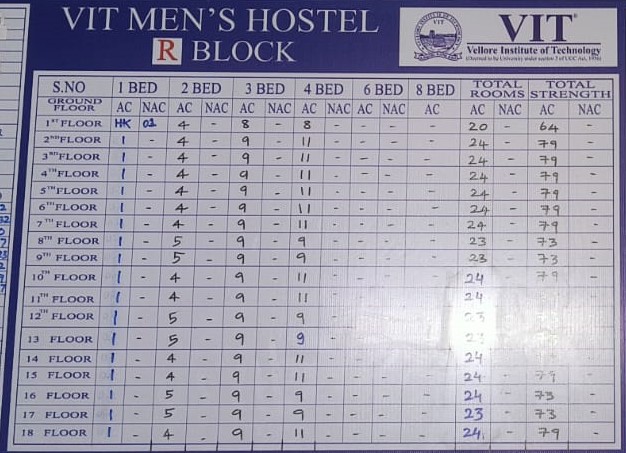 VIT MEN'S HOSTEL
R BLOCK
VIT
Vellore Institute of Technology
(Deemed to be University under section 3 of UGC Act, 1956)
S.NO 1 BED 2 BED 3 BED 4 BED 6 BED 8 BED TOTAL ROOMS TOTAL STRENGTH
GROUND FLOOR AC NAC AC NAC AC NAC AC NAC AC NAC AC AC NAC AC NAC
1ST FLOOR HK 02 4 - 8 - 8 - - - - 20 - 64 -
2ND FLOOR 1 - 4 - 9 - 11 - - - - 24 - 79 -
3RD FLOOR 1 - 4 - 9 - 11 - - - - 24 - 79 -
4TH FLOOR 1 - 4 - 9 - 11 - - - - 24 - 79 -
5TH FLOOR 1 - 4 - 9 - 11 - - - - 24 - 79 -
6TH FLOOR 1 - 4 - 9 - 11 - - - - 24 - 79 -
7TH FLOOR 1 - 4 - 9 - 11 - - - - 24 - 79 -
8TH FLOOR 1 - 5 - 9 - 9 - - - - 23 - 73 -
9TH FLOOR 1 - 5 - 9 - 9 - - - - 23 - 73 -
10TH FLOOR 1 - 4 - 9 - 11 - 24 79
11TH FLOOR 1 - 4 - 9 - 11 - 24
12TH FLOOR 1 - 5 - 9 - 9 -
13 FLOOR 1 - 5 - 9 - 9 -
14 FLOOR 1 - 4 - 9 - 11 - 24
15 FLOOR 1 - 4 - 9 - 11 - 24 - 79
16 FLOOR 1 - 5 - 9 - 9 - - - - 24 - 73 -
17 FLOOR 1 - 5 - 9 - 9 - - - - 23 - 73 -
18 FLOOR 1 - 4 - 9 - 11 - - - - 24 - 79 -